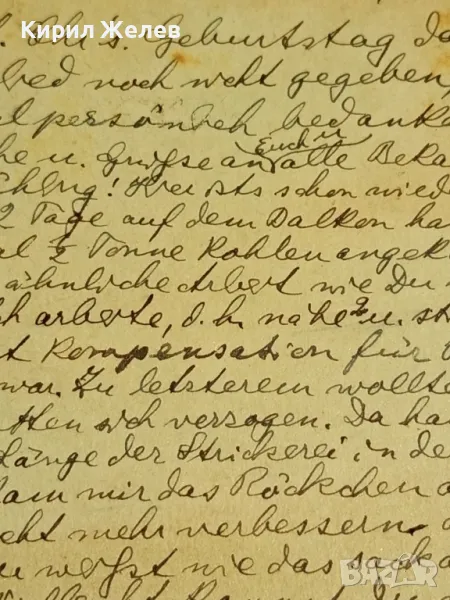 Кирил Желев
. Ohl's. Geburtstag da
ed noch nicht gegeben,
l persönlich bedanke
he u. Grüße an Euch u. alle Beka
! Hier ists schon wiede
2 Tage auf dem Balkon ha
al ½ Tonne Kohlen angek
ähnliche Arbeit wie Du
ch arbeite, d. h. nähe u. str
t Kompensation für
war. Zu letzterem wollte
tten sich verzogen. Da ha
Länge der Strickerei in de
kam mir das Röckchen
cht mehr verbessern.
u weißt wie das
bazar.bg